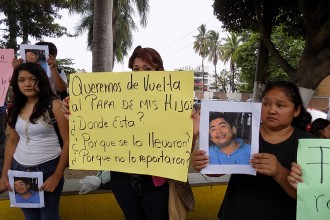 Queremos de Vuelta
al PAPA DE MIS HIJOS
¿Donde Esta?
¿Porque se lo llevaron?
¿Porque no lo reportaron?